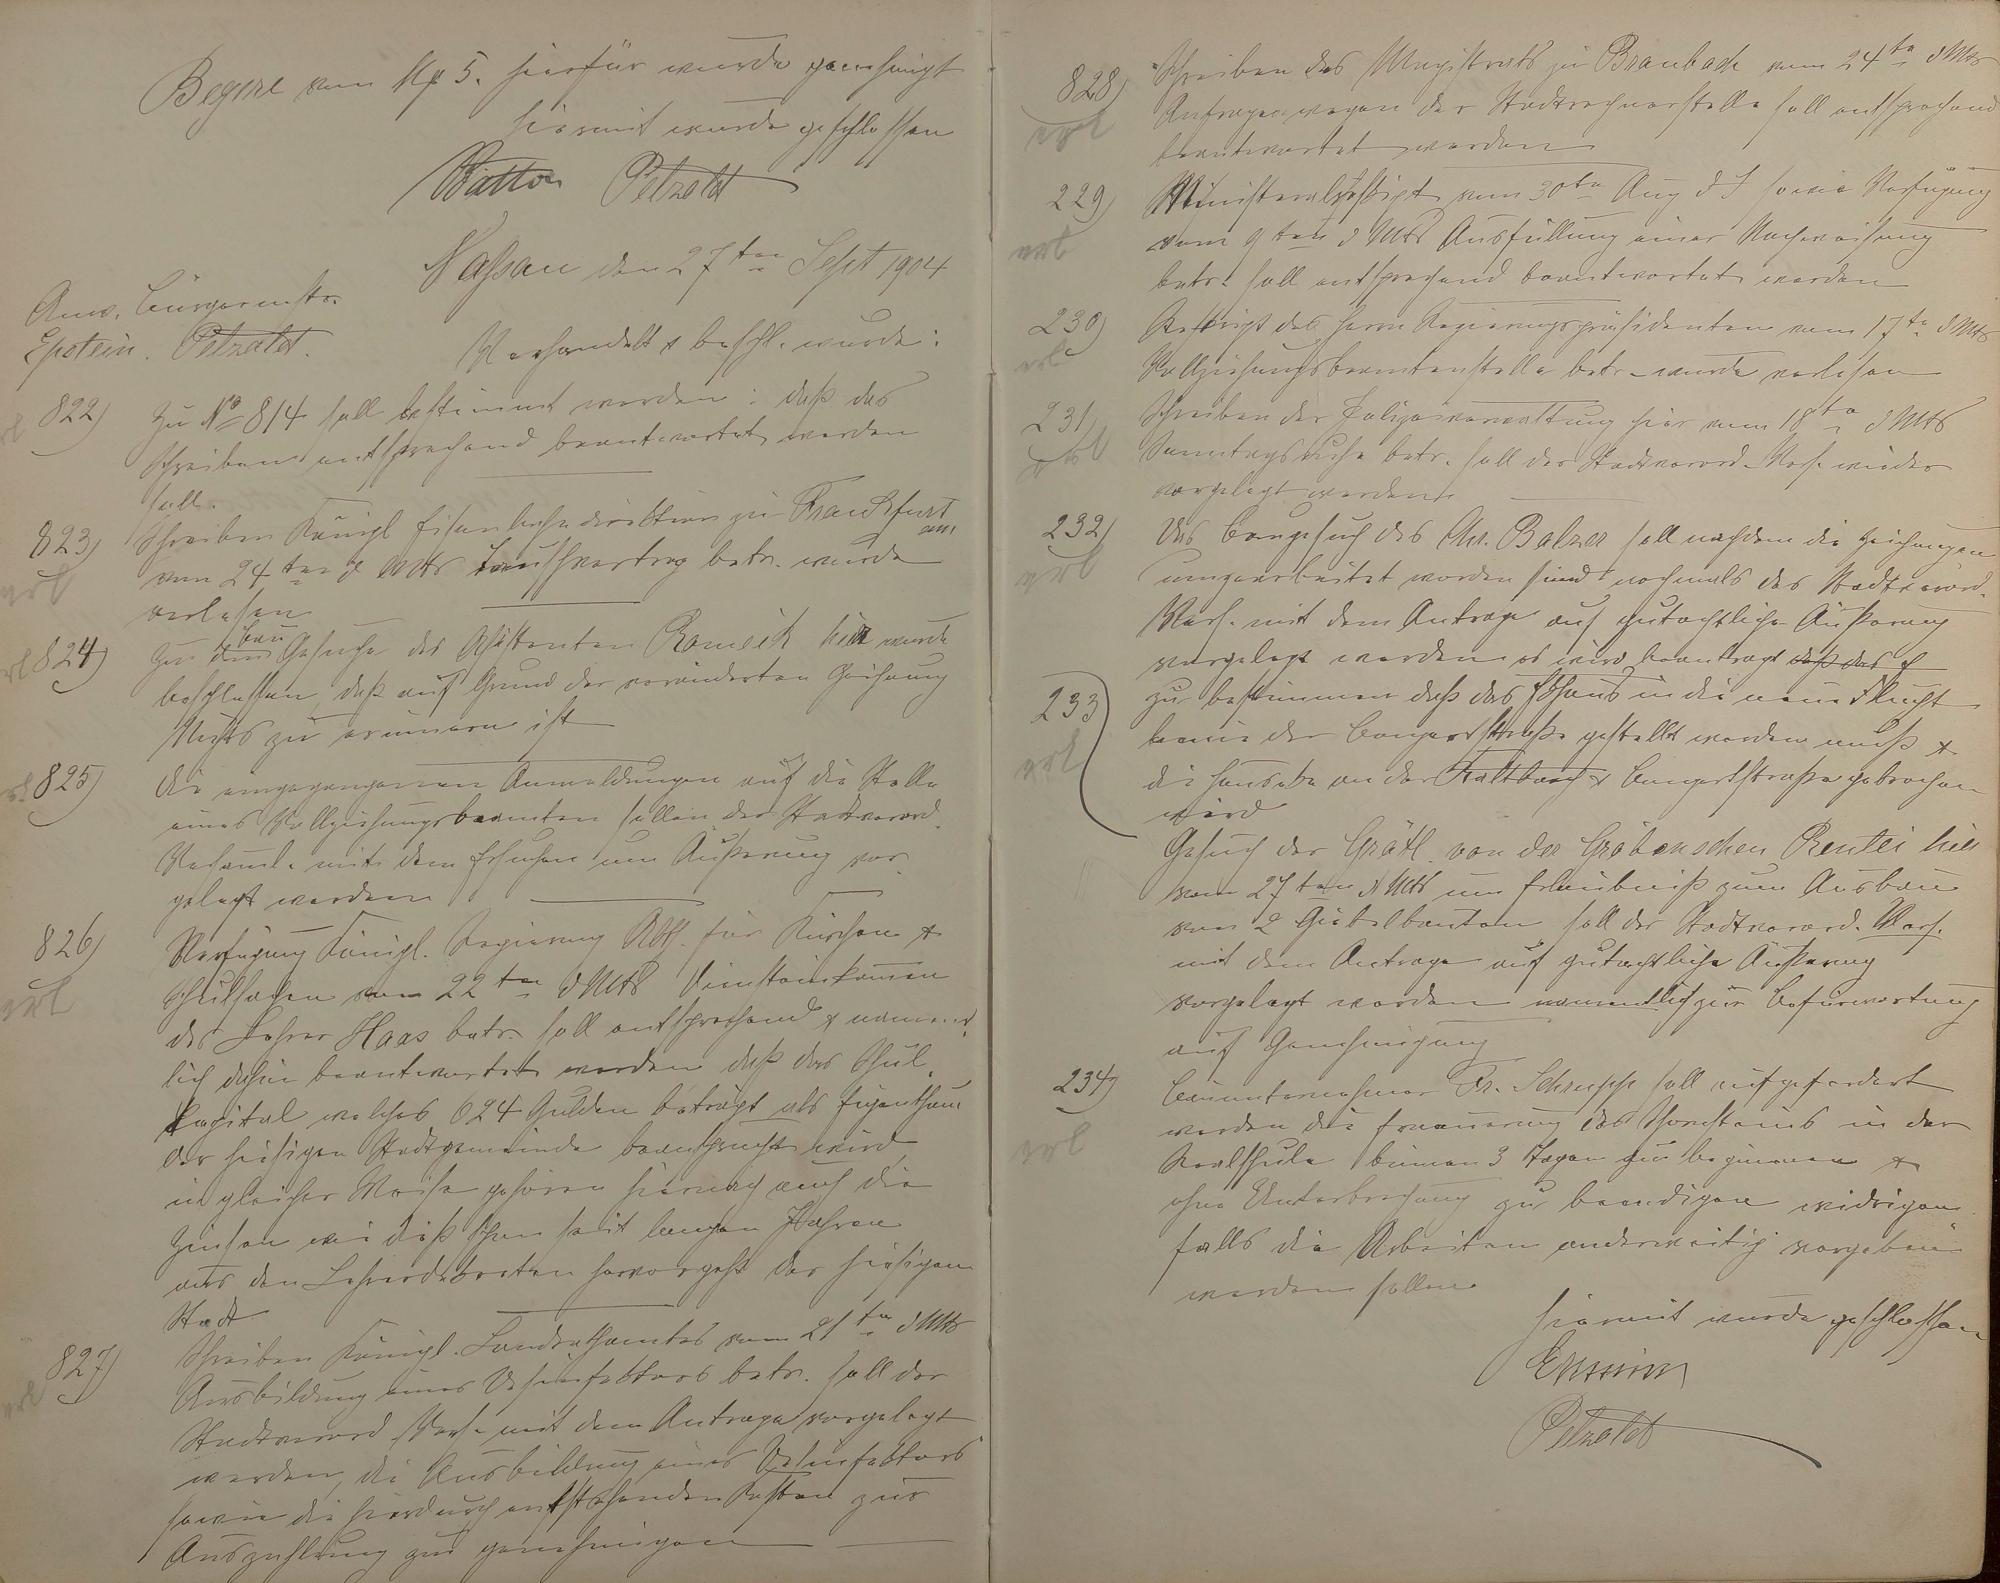 Begere vom Mk 5. hierfür wurde genehmigt
Hiermit wurde geschlossen
Petzoldt
Nassau den 27ten Sept 1904
Anw. Bürgermstr.
Epstein. Petzoldt.
Verhandelt & beschl. wurde:
822) Zu No 814 soll bestimmt werden: daß das
Schreiben entsprechend beantwortet werden
soll.
823) Schreiben Königl Eisenbahndirektion zu Frankfurt
a/M
vom 24ten d Mts Tauschvertrag betr. wurde
verlesen
vrl
824) Zu dem Baugesuche des Assistenten Romeick hier wurde
beschlossen, daß auf Grund der veränderten Zeichnung
Nichts zu erinnern ist
vrl
825) Die eingegangenen Anmeldungen auf die Stelle
eines Vollziehungsbeamten sollen der Stadtverord.
Versaml. mit dem Ersuchen um Äußerung vor-
gelegt werden
826) Verfügung Königl. Regierung Abth. für Kirchen &
Schulsachen vom 22ten d Mts Diensteinkommen
vrl
des Lehrer Haas betr. soll entsprechend & nament-
lich dahin beantwortet werden daß das Schul-
kapital welches 624 Gulden beträgt als Eigenthum
der hiesigen Stadtgemeinde beansprucht wird,
in gleicher Weise gehören hiernach auch die
Zinsen wie dieß schon seit langen Jahren
aus den hervorgeht der hiesigen
Stadt
827) Schreiben Königl. Landrathsamtes vom 21ten d Mts
vrl
Ausbildung eines Desinfektors betr. soll der
Stadtverord. Vers. mit dem Antrage vorgelegt
werden, die Ausbildung eines Desinfektors
sowie die hierdurch entstehenden Kosten zur
Auszahlung zu genehmigen
828) Schreiben des Magistrats zu Braubach vom 24ten d Mts
Anfragen wegen der Stadtrechnerstelle soll entsprechend
vrl
beantwortet werden
229) Ministerialreskript vom 30ten Aug d J sowie Verfügung
vom 9ten d Mts Ausfüllung einer Nachweisung
vrl
betr. soll entsprechend beantwortet werden
230) Reskript des Herrn Regierungspräsidenten vom 17ten d Mts
vrl
Vollziehungsbeamtenstelle betr. wurde verlesen
231) Schreiben der Polizeiverwaltung hier vom 18ten d Mts
vrl
Sonntagsruhe betr. soll der Stadtverord. Vers. wieder
vorgelegt werden.
232) Das Baugesuch des Chr. Balzer soll nachdem die Zeichnungen
vrl
umgearbeitet worden sind nochmals der Stadtverord.
Vers. mit dem Antrage auf gutachtliche Äußerung
vorgelegt werden es wird beantragt daß das E
233) zu bestimmen daß das Ekhaus in die neue Flucht
linie der Bongertstraße gestellt werden muß &
vrl
die Hausecke an der Kaltbach & Bongertstraße gebrochen
wird
Gesuch der Gräfl. von der Gröben'schen Rentei hier
vom 27ten d Mts um Erlaubniß zum Ausbau
von 2 Giebelbauten soll der Stadtverord. Vers.
mit dem Antrage auf gutachtliche Äußerung
vorgelegt werden namentlich zur Befürwortung
auf Genehmigung
234) Bauunternehmer Fr. Schrupp soll aufgefordert
werden die Erneuerung des Schornsteins in der
vrl
Realschule binnen 3 Tagen zu beginnen &
ohne Unterbrechung zu beendigen widrigen-
falls die Arbeiten anderweitig vergeben
werden sollen
Hiermit wurde geschlossen
Petzoldt